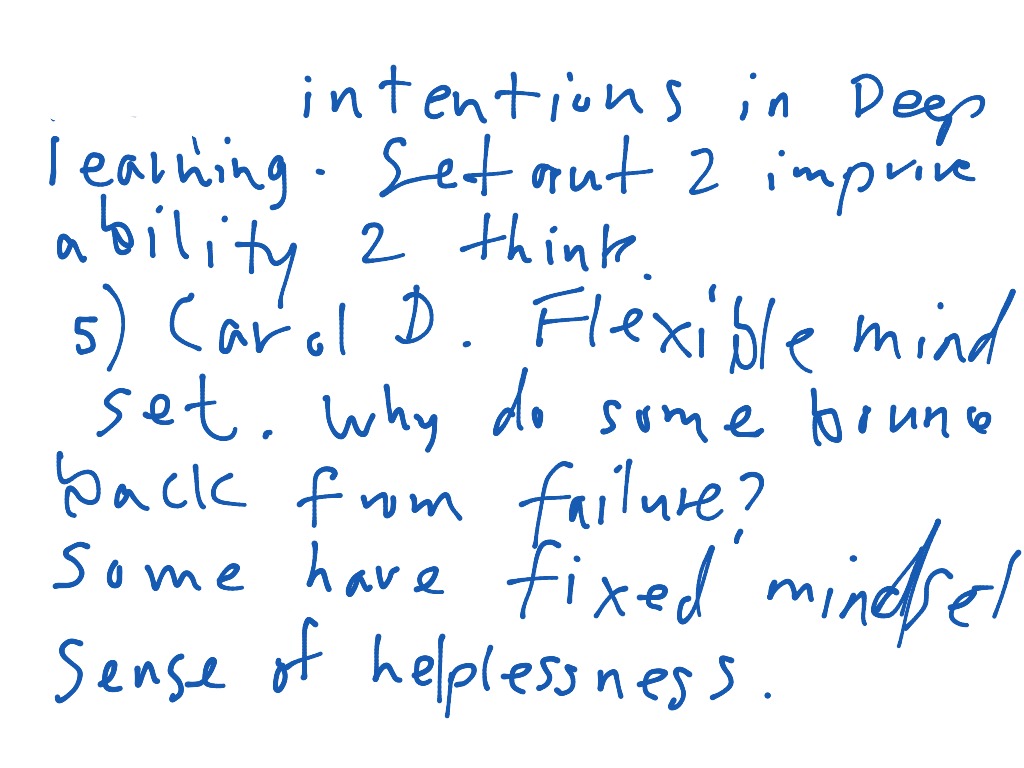 intentions in Deep
learning. Set out 2 improve
ability 2 think.
5) Carol D. Flexible mind
set. Why do some bounce
back from failure?
Some have fixed mindset
Sense of helplessness.